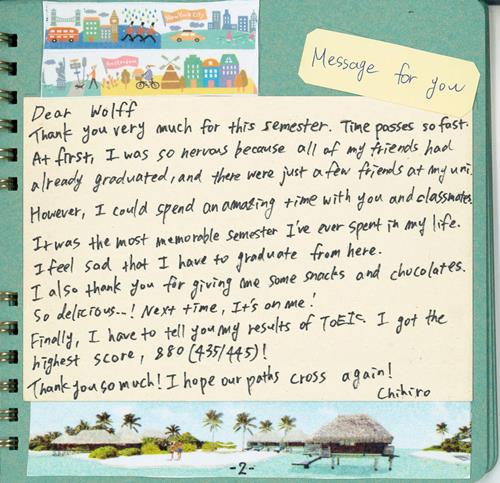 New York City
Amsterdam
Message for you
Dear Wolff
Thank you very much for this semester. Time passes so fast.
At first, I was so nervous because all of my friends had
already graduated, and there were just a few friends at my uni.
However, I could spend an amazing time with you and classmates.
It was the most memorable semester I've ever spent in my life.
I feel sad that I have to graduate from here.
I also thank you for giving me some snacks and chocolates.
So delicious...! Next time, It's on me!
Finally, I have to tell you my results of TOEIC. I got the
highest score, 880 (435/445)!
Thank you so much! I hope our paths cross again!
Chihiro
-2-